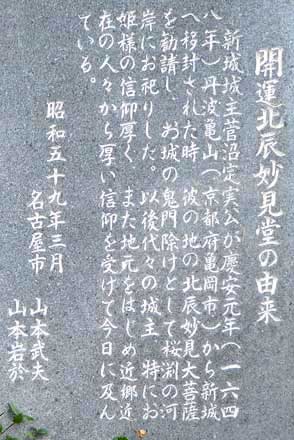 開運北辰妙見堂の由来
新城城主菅沼定実公が慶安元年(一六四
八年)丹波亀山(京都府亀岡市)から新城
へ移封された時、彼の地の北辰妙見大菩薩
を勧請し、お城の鬼門除けとして桜淵の河
岸にお祀りした。以後代々の城主、特にお
姫様の信仰厚く、また地元をはじめ近郷近
在の人々から厚い信仰を受けて今日に及ん
でいる。
昭和五十九年三月
名古屋市 山本武夫
山本岩於